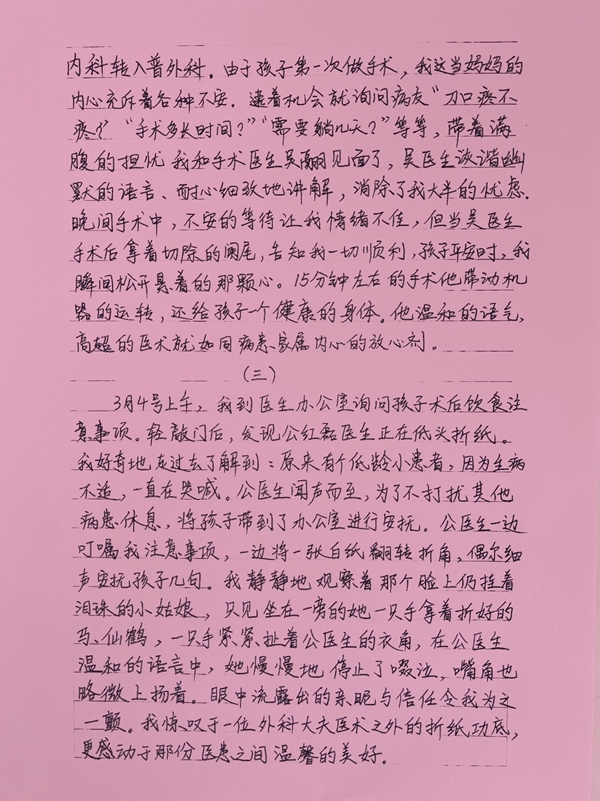 内科转入普外科。由于孩子第一次做手术，我这当妈妈的
内心充斥着各种不安。逮着机会就询问病友“刀口疼不
疼？”“手术多长时间？”“需要躺几天？”等等，带着满
腹的担忧我和手术医生吴翮见面了，吴医生诙谐幽
默的语言、耐心细致地讲解，消除了我大半的忧虑。
晚间手术中，不安的等待让我情绪不佳，但当吴医生
手术后拿着切除的阑尾，告知我一切顺利，孩子平安时，我
瞬间松开悬着的那颗心。15分钟左右的手术他带动机
器的运转，还给孩子一个健康的身体。他温和的语气，
高超的医术就如同病患家属内心的放心剂。
（三）
3月4号上午，我到医生办公室询问孩子术后饮食注
意事项。轻敲门后，发现公红磊医生正在低头折纸。
我好奇地走过去了解到：原来有个低龄小患者，因为生病
不适，一直在哭喊。公医生闻声而至，为了不打扰其他
病患休息，将孩子带到了办公室进行安抚。公医生一边
叮嘱我注意事项，一边将一张白纸翻转折角，偶尔细
声安抚孩子几句。我静静地观察着那个脸上仍挂着
泪珠的小姑娘，只见坐在一旁的她一只手拿着折好的
马、仙鹤，一只手紧紧扯着公医生的衣角，在公医生
温和的语言中，她慢慢地停止了啜泣，嘴角也
略微上扬着。眼中流露出的亲昵与信任令我为之
一颤。我惊叹于一位外科大夫医术之外的折纸功底，
更感动于那份医患之间温馨的美好。